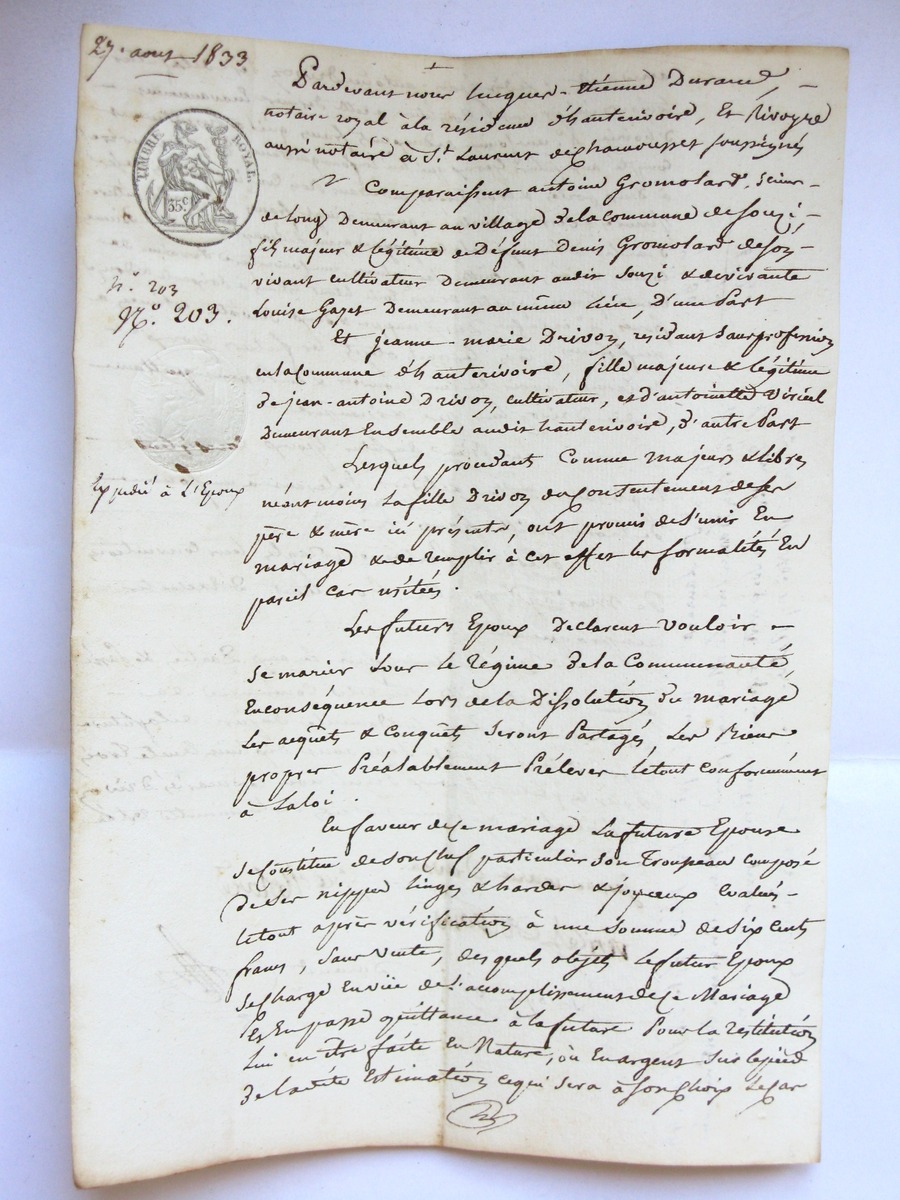 27. aout 1833
TIMBRE ROYAL
35c
N°. 203
N°. 203.
Expédié à L'Epoux
Pardevant nous Étienne Durand, -
notaire royal à la résidence d'hauterivoire, Et Rivoyre
aussi notaire à St. Laurent de chamousset soussignés
Comparaissent antoine Gromolard, scieur -
de long Demeurant au village de la commune de Souzi -
fils majeur & légitime de Défunt Denis Gromolard de son -
vivant cultivateur Demeurant audit Souzi & de vivante
Louise Gayet Demeurant au même lieu, D'une Part
Et jeanne-marie Drivon, résidant sans profession
en la commune d'hauterivoire, fille majeure & légitime
de jean-antoine Drivon, cultivateur, et d'antoinette Viricel
Demeurant Ensemble audit hauterivoire, D'autre Part
Lesquels procédant Comme majeurs & libres
néantmoins La fille Drivon du Contentement de ses
père & mère ici présents, ont promis de s'unir En
mariage & de remplir à cet effet les formalités En
pareil cas usitées.
Les futurs Epoux Déclarent Vouloir -
se marier sous le Régime de la Communauté,
En conséquence Lors de la Dissolution du mariage
Les acquêts & Conquêts seront Partagés, Les Biens
propres Préalablement Prélevés le tout conformément
à La loi.
En faveur de Ce mariage La future Epouse
se Constitue de son Chef particulier son Trousseau composé
de ses nippes linges & hardes & joyeaux évalués -
le tout après vérification à une somme de six cents
francs, sans vente, des quels objets le futur Epoux
se charge En vue de l'accomplissement de Ce Mariage
Et En passe quittance à la future Pour la restitution
Lui en être faite En Nature, ou En argent sur le pied
de la dite Estimation ce qui sera à son Choix Le Cas